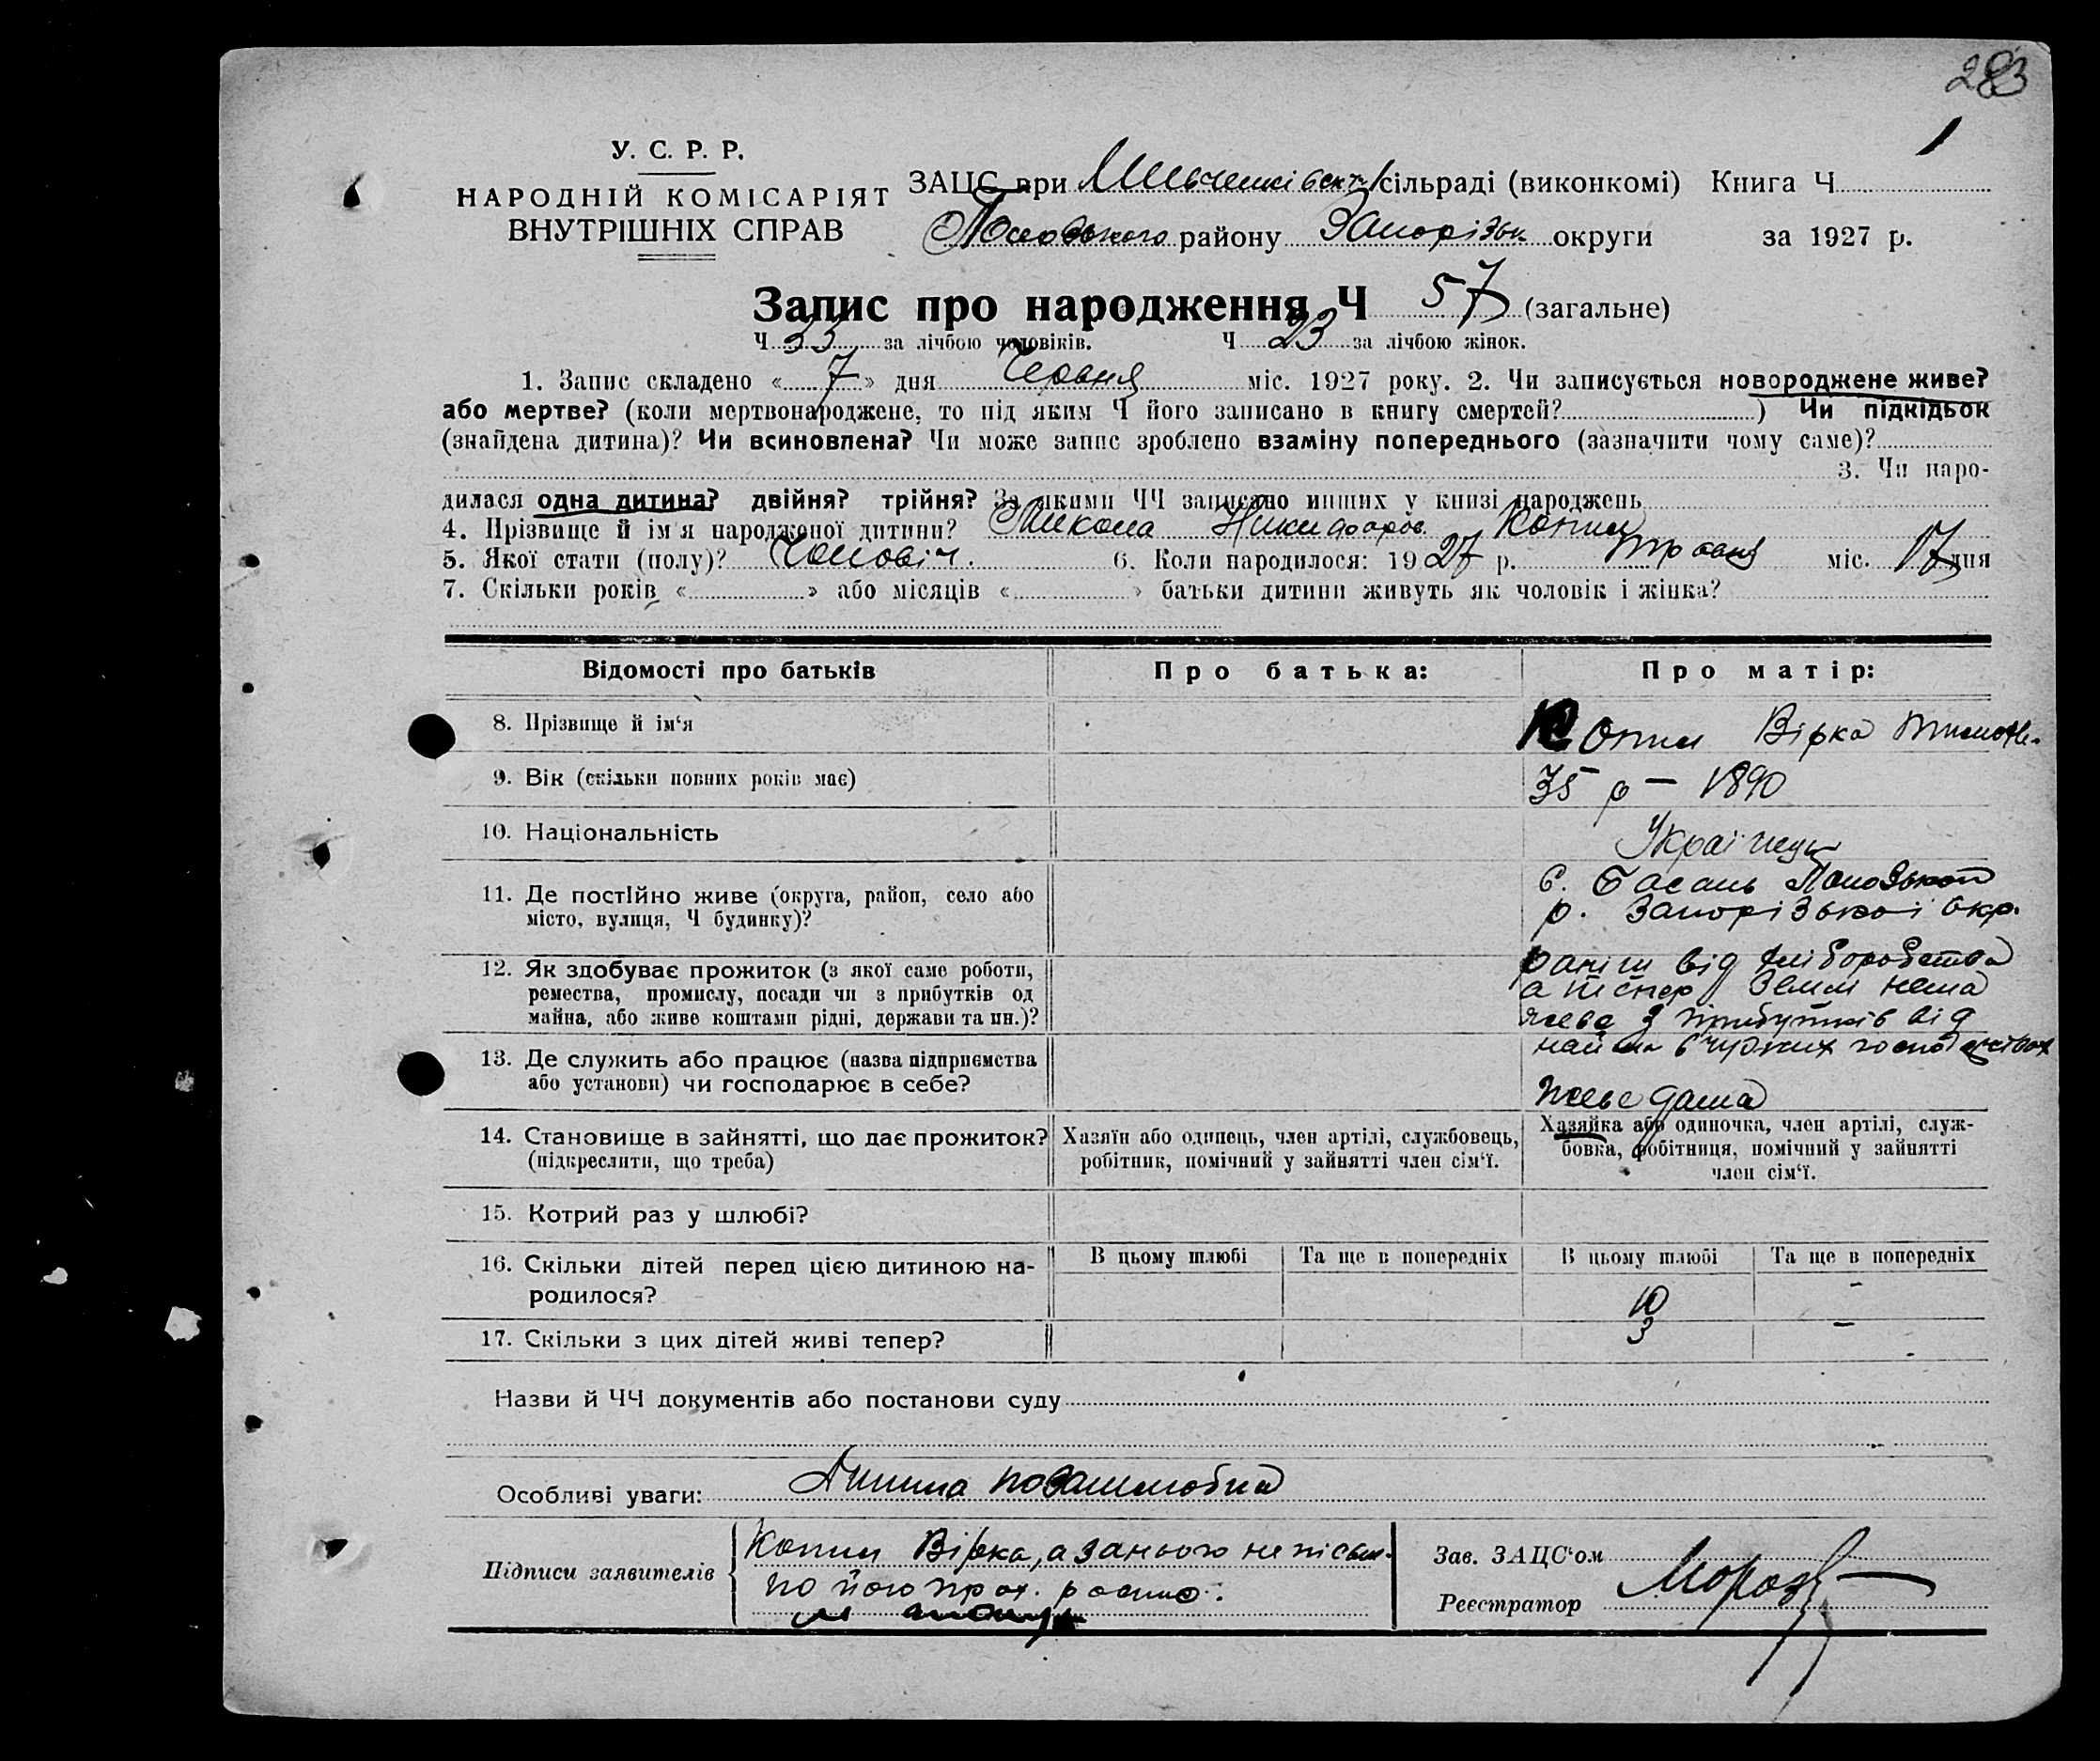 283
1
У. С. Р. Р.
НАРОДНІЙ КОМІСАРІЯТ
ВНУТРІШНІХ СПРАВ
ЗАЦС при сільраді (виконкомі) Книга Ч
району Запорізьк округи за 1927 р.
Запис про народження Ч 57 (загальне)
Ч 33 за лічбою чоловіків. Ч 23 за лічбою жінок.
1. Запис складено « 7 » дня Червня міс. 1927 року. 2. Чи записується новороджене живе?
або мертве? (коли мертвонароджене, то під яким Ч його записано в книгу смертей? ) Чи підкідьок
(знайдена дитина)? Чи всиновлена? Чи може запис зроблено взаміну попереднього (зазначити чому саме)?
3. Чи наро-
дилася одна дитина? двійня? трійня? За якими ЧЧ записано инших у книзі народжень
4. Прізвище й ім'я народженої дитини? Микола Никифоров. Копил
5. Якої стати (полу)? Чоловіч. 6. Коли народилося: 1927 р. травня міс. 17 дня
7. Скільки років « » або місяців « » батьки дитини живуть як чоловік і жінка?
Відомості про батьків Про батька: Про матір:
8. Прізвище й ім‘я Копил Вірка Тимоф.
9. Вік (скільки повних років має) 35 р – 1890
10. Національність
11. Де постійно живе (округа, район, село або с. Басань
місто, вулиця, Ч будинку)? р. Запорізької окр.
12. Як здобуває прожиток (з якої саме роботи, раніш від хліборобства
ремества, промислу, посади чи з прибутків од а тепер землі нема
майна, або живе коштами рідні, держави та ин.)? живе з прибутків від
13. Де служить або працює (назва підприємства найма в чужих господарствах
або установи) чи господарює в себе? живе дома
14. Становище в зайнятті, що дає прожиток? Хазяїн або одинець, член артілі, службовець, Хазяйка або одиночка, член артілі, служ-
(підкреслити, що треба) робітник, помічний у зайнятті член сім‘ї. бовка, робітниця, помічний у зайнятті
член сім‘ї.
15. Котрий раз у шлюбі?
16. Скільки дітей перед цією дитиною на- В цьому шлюбі Та ще в попередніх В цьому шлюбі Та ще в попередніх
родилося? 10 –
17. Скільки з цих дітей живі тепер? 3 –
Назви й ЧЧ документів або постанови суду
Особливі уваги: Дитина позашлюбна
Підписи заявителів Копил Вірка, а за нього неписьм.
по його прох. роспис.
Зав. ЗАЦС‘ом
Реєстратор Мороз